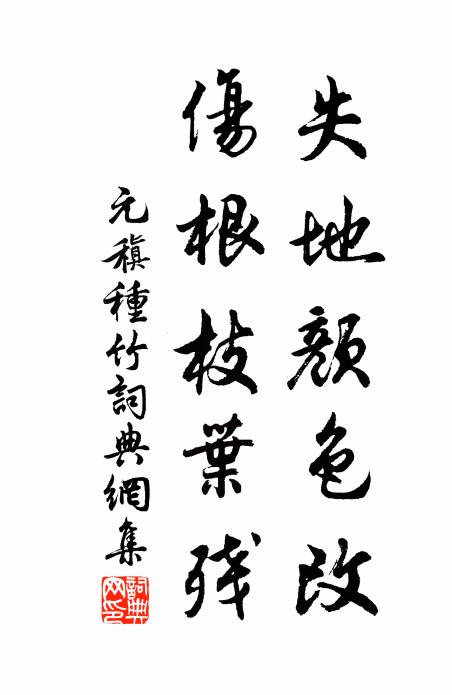 失地顏色改
傷根枝葉残
元稹種竹詞典網集
詞典網印